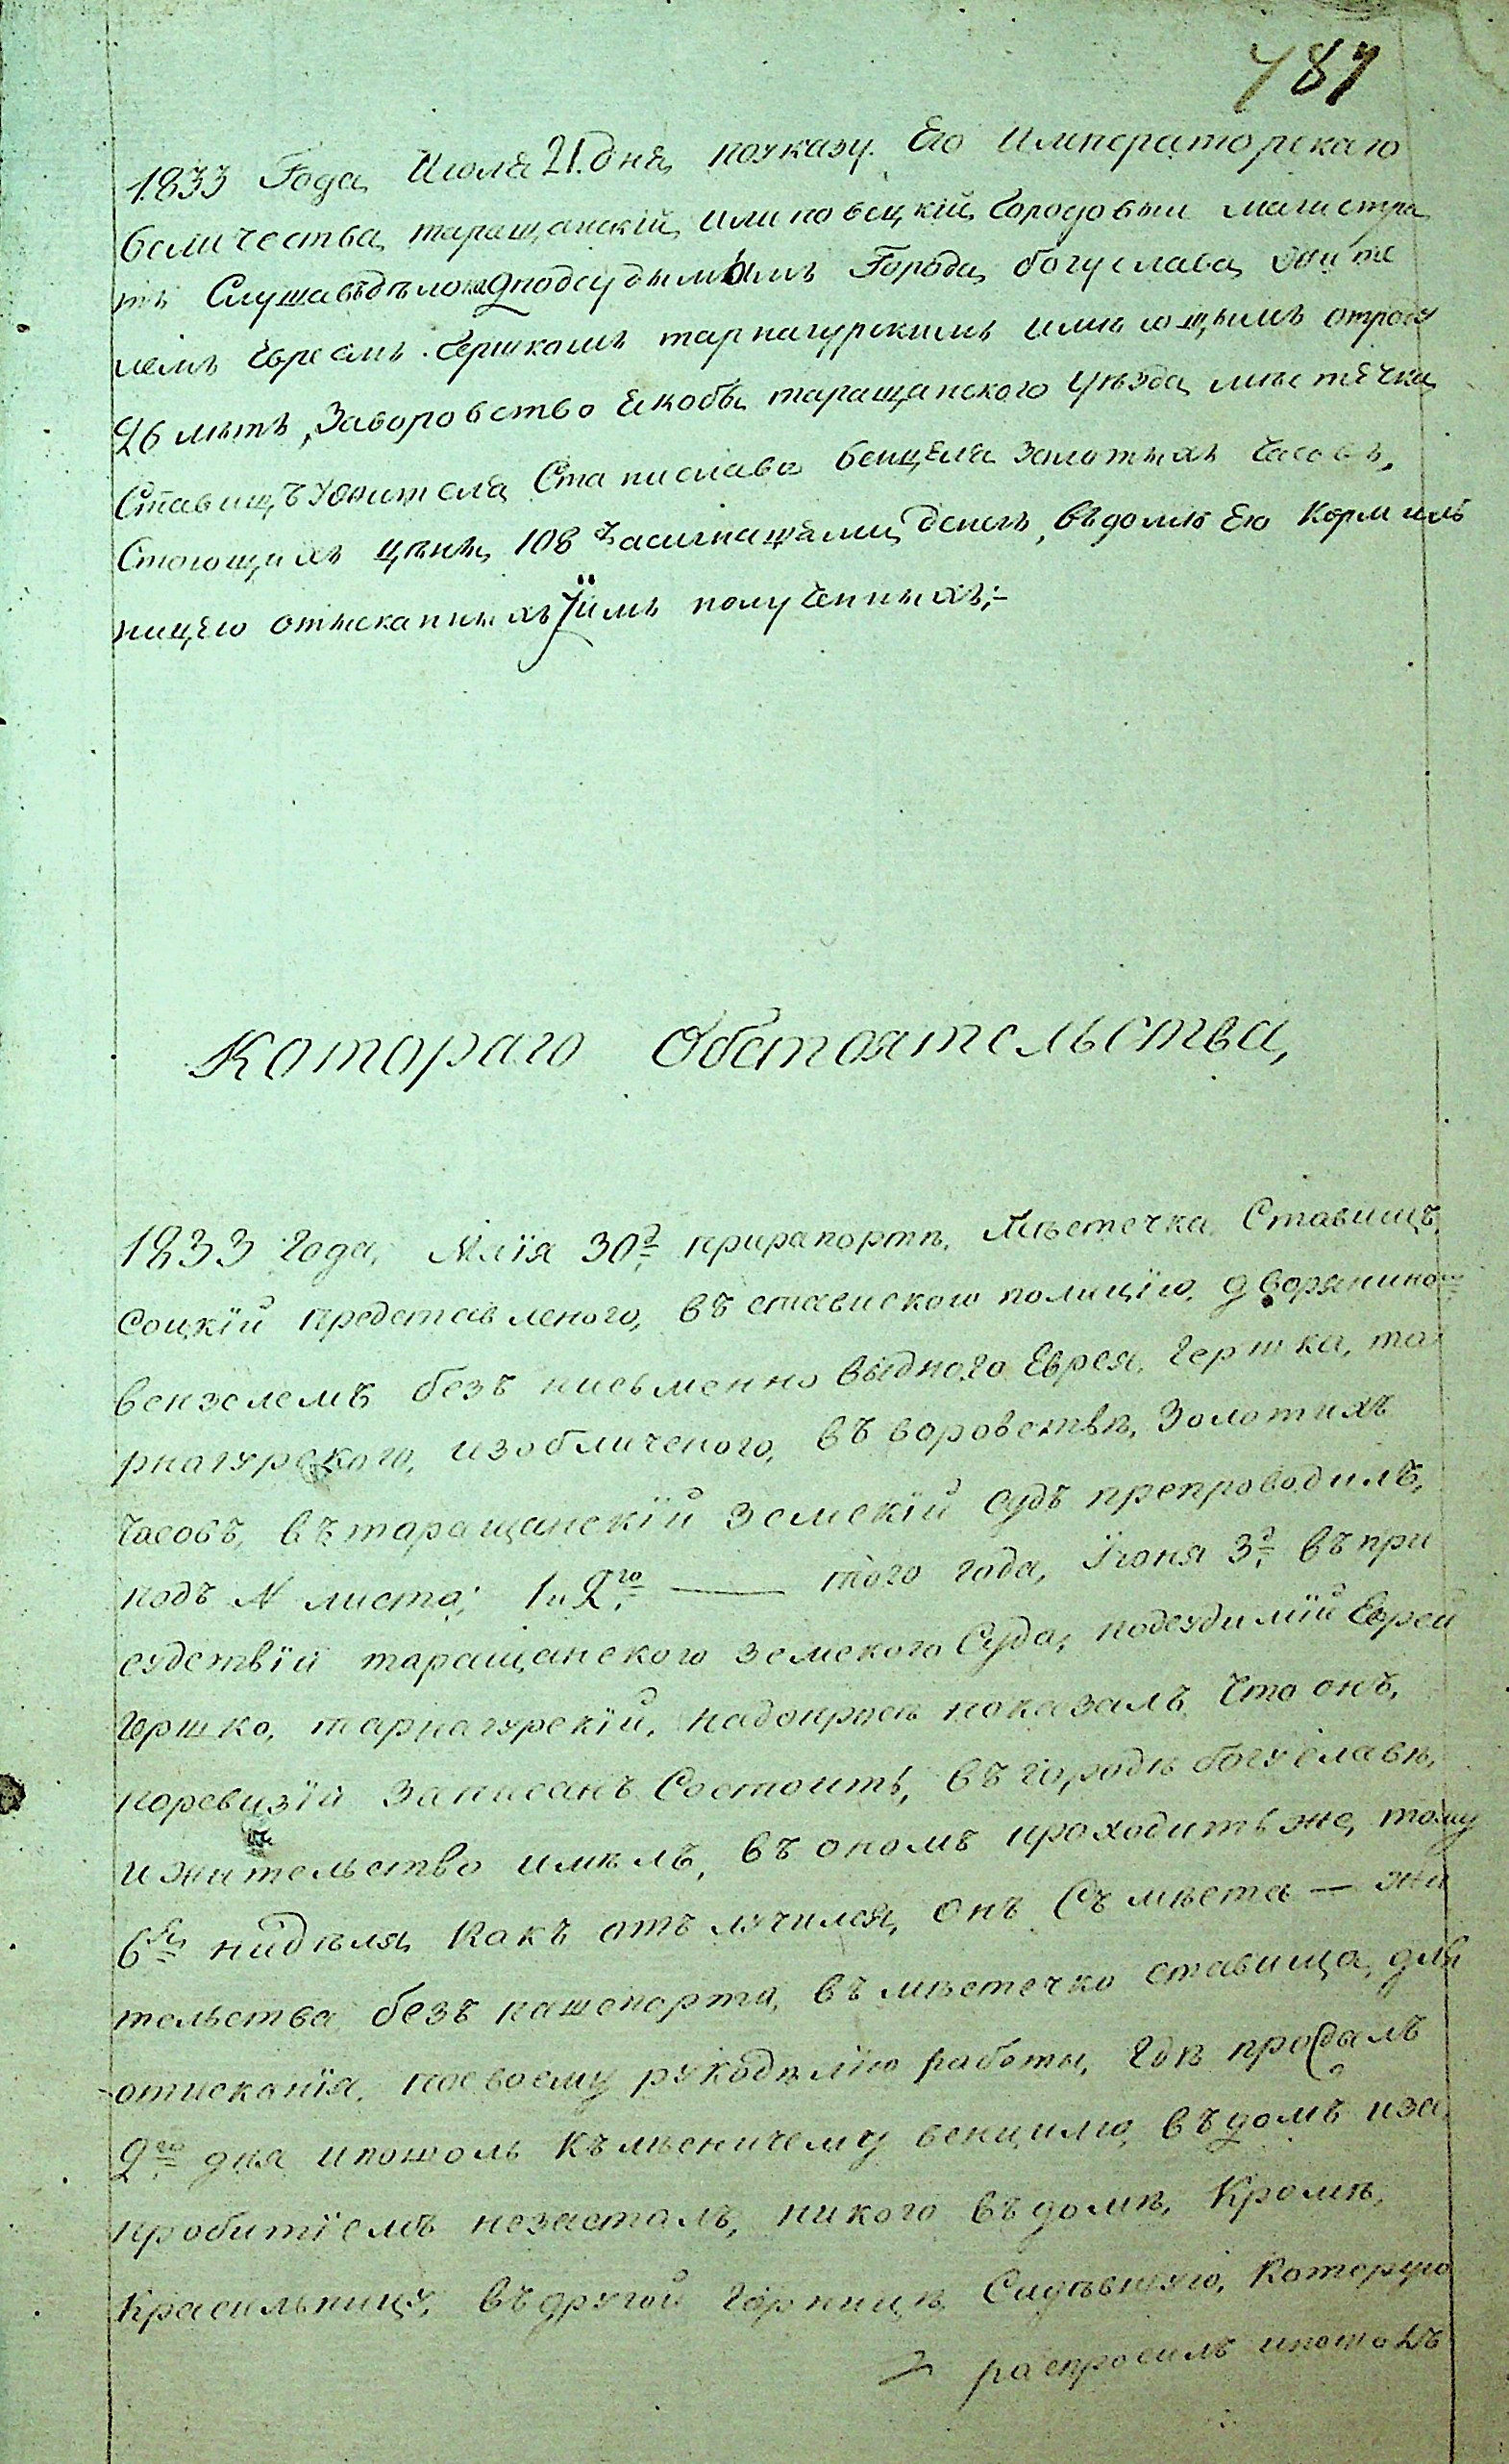 787
1833 Года Июля 21. дня, поуказу. Его Императорскаго
величества, таращанскій, илиповецкій, Городовыи магистра
тъ Слушавъ дѣло подсудымымъ Города, богуслава, жите
лемъ Евреемъ. Гершкомъ тарнагурскимъ имѣющымъ отроду
26 лѣтъ, Заворовство якобы таращанского уѣзда, мѣстечка,
Ставищъ Ужителя, Станислава венцеля золотыхъ Часовъ,
Стоющихъ цѣны, 108 асигнацыями, денегъ, въдомѣ Его Кормил
ницею отысканныхъ Уимъ полученныхъ;-
Котораго Обстоятельства,
1833 года, Маія 30д прирапортѣ, Мѣстечка, Ставищъ,
соцкій представленого, въ ставискою полицію, дворянино
вензелемъ безъ письменно выдного Еврея, Гершка, та
рнагурского, изобличеного, въ воровствѣ, Золотихъ
Часовъ, въ таращанскій земскій судъ препроводилъ,
подъ № листа; 1и2го — того года, Їюня 3д въ при
судствїи таращанского земского Суда, подсудимїй Еврей
Гершко, тарнагурскїй, надопросѣ показалъ что онъ,
поревизїи Записанъ Состоитъ, въ городѣ богуславѣ,
ижительство имѣлъ, въ ономъ проходитъ же, тому
6я нидѣля, Какъ отълучился, онъ Съ мѣста — жи
тельства безъ пашепорта, въ мѣстечко ставища, для
отисканїя, посвоему рукодѣлїю работы, гдѣ пробалъ
2го дня, ипошолъ къ венцилю, въдомъ иза
пробитїемъ незасталъ, никого въдомѣ, Кромѣ,
Красильницу, въдругой горницѣ Сидѣвшую, Которую
распросилъ ипотомъ